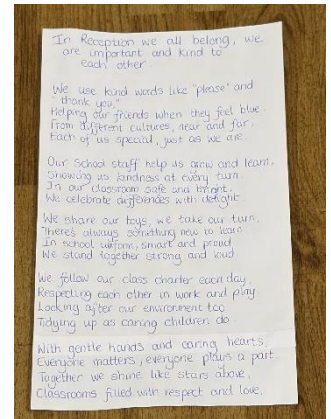 In Reception we all belong, we
are important and kind to
each other.
We use kind words like "please" and
"thank you,"
Helping our friends when they feel blue.
From different cultures, near and far,
Each of us special, just as we are.
Our School staff help us grow and learn.
Showing us kindness at every turn
In our classroom safe and bright,
We celebrate differences with delight.
We share our toys, we take our turn,
There's always something new to learn
In school uniform, smart and proud
We stand together strong and loud
We follow our class charter each day
Respecting each other in work and play
Looking after our environment too
Tidying up as caring children do
With gentle hands and caring hearts,
Everyone matters, everyone plays a part
Together we shine like stars above,
Classrooms filled with respect and love,